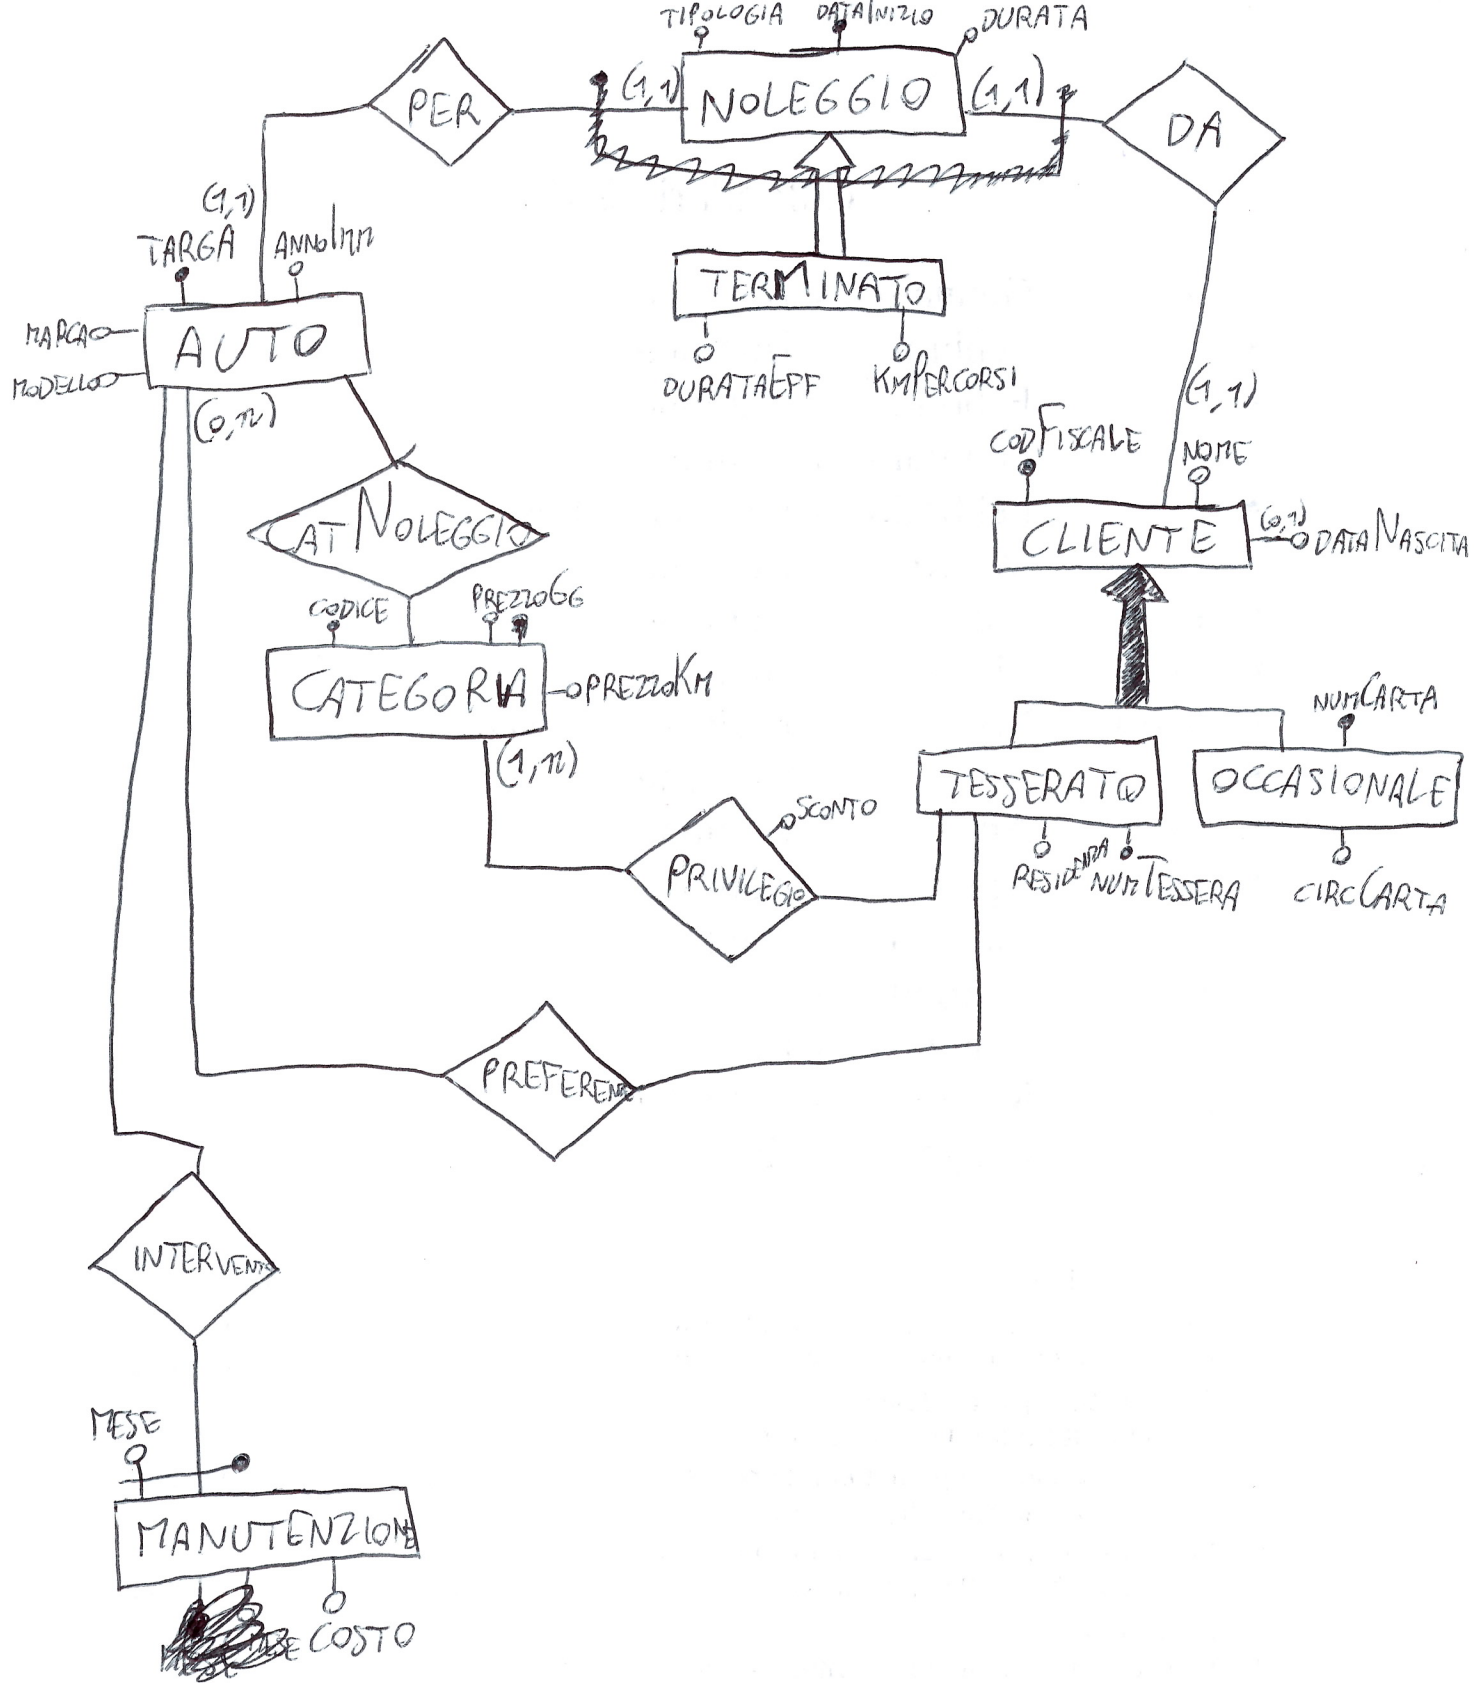 TIPOLOGIA
DATAINIZIO
DURATA
PER
(1,1)
NOLEGGIO
(1,1)
DA
(1,1)
TARGA
ANNOIMM
MARCA
AUTO
MODELLO
(0,n)
TERMINATO
DURATAEFF
KMPERCORSI
(1,1)
CODFISCALE
NOME
CLIENTE
(0,1)
DATANASCITA
CATNOLEGGIO
CODICE
PREZZOGG
CATEGORIA
PREZZOKM
(1,n)
NUMCARTA
TESSERATO
OCCASIONALE
SCONTO
PRIVILEGIO
RESIDENZA
NUMTESSERA
CIRCCARTA
PREFERENZE
INTERVENTO
MESE
MANUTENZIONE
COSTO